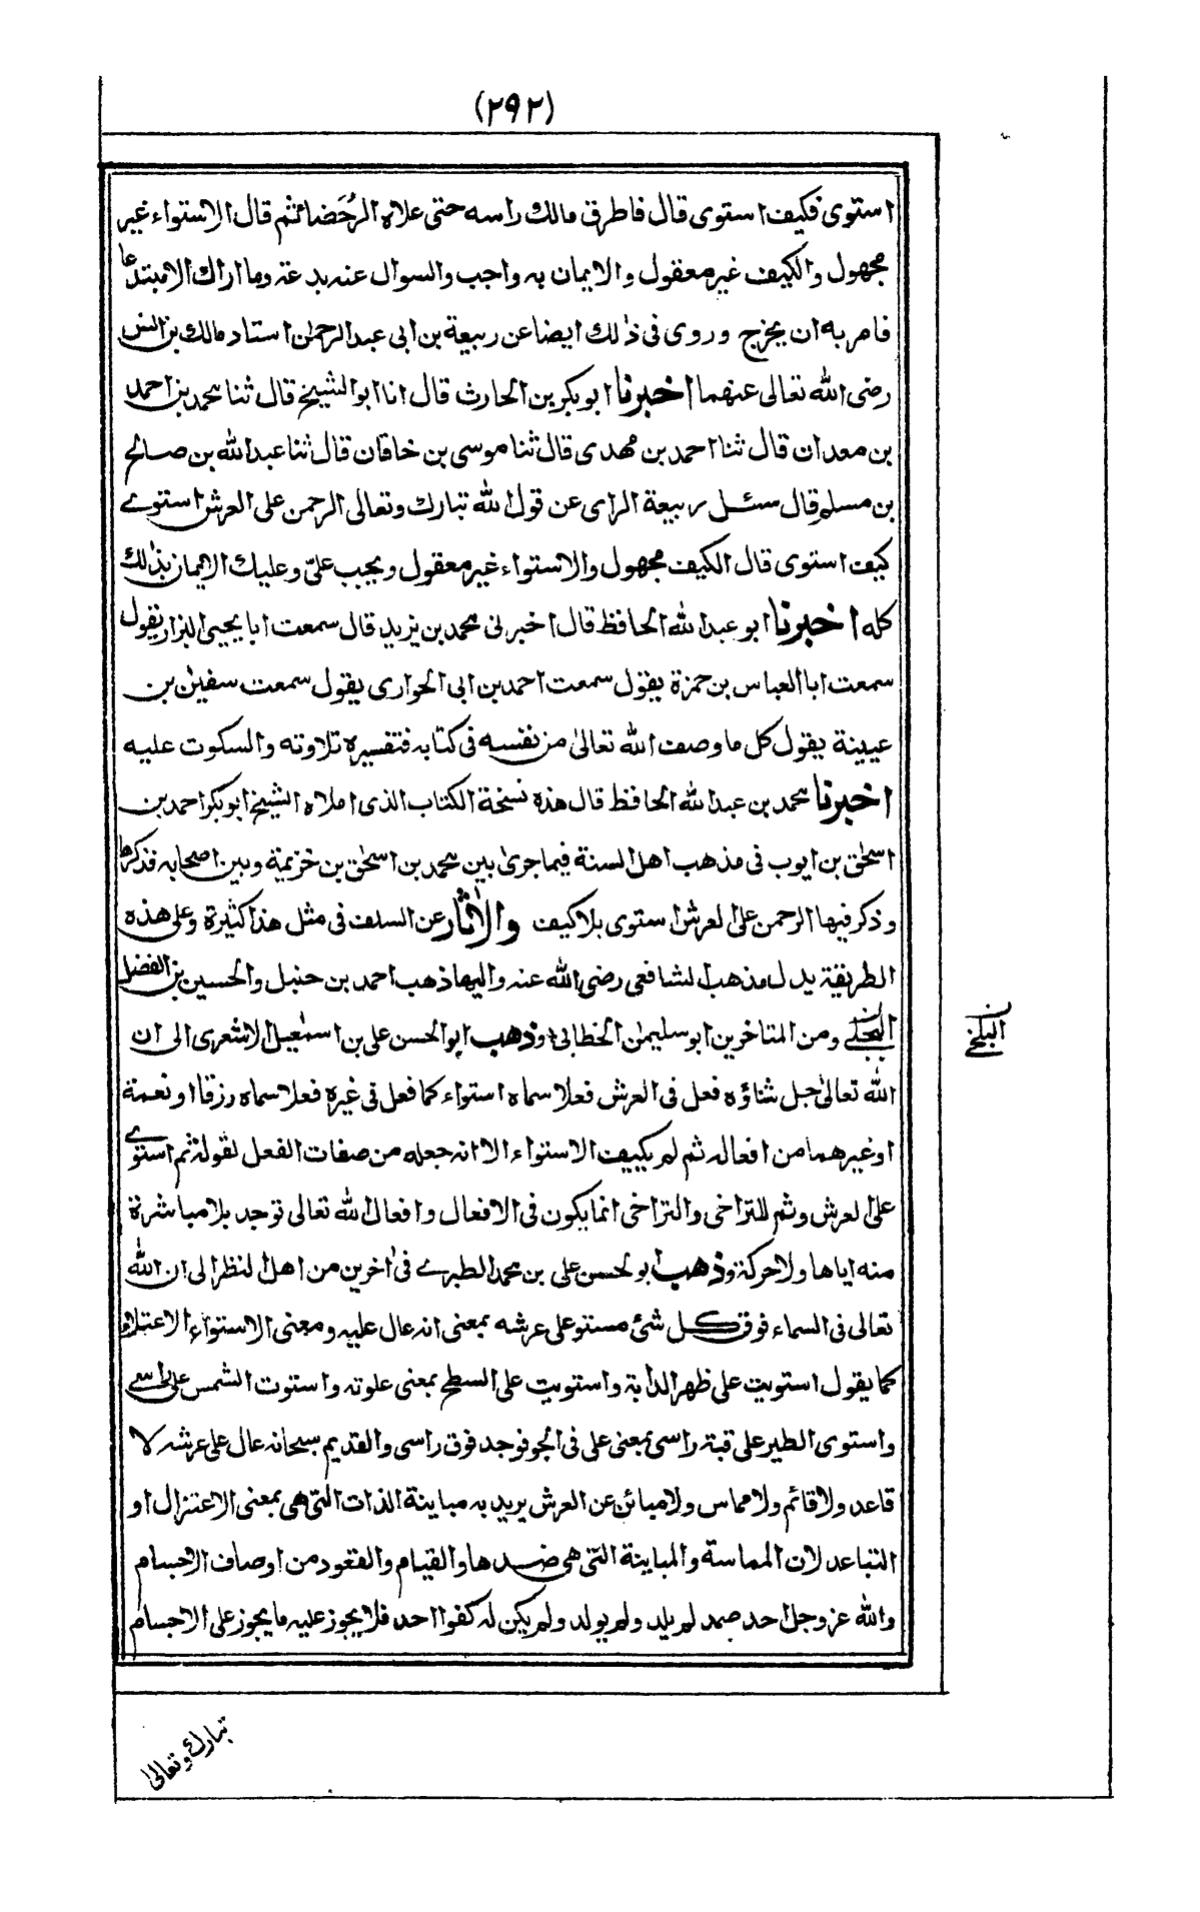 (۲۹۲)
استوى فكيف استوى قال فاطرق مالك راسه حتى علاه الرُحَضائثم قال الاستواء غير
مجهول والكيف غير معقول والايمان به واجب والسوال عنه بدعة وما اراك الا مبتدعا
فامر به ان يخرج وروى فى ذلك ايضا عن ربيعة بن ابى عبد الرحمٰن استاد مالك بن انس
رضى الله تعالى عنهما اخبرنا ابو بكر بن الحارث قال انا ابو الشيخ قال ثنا محمد بن احمد
بن معدان قال ثنا احمد بن مهدى قال ثنا موسى بن خاقان قال ثنا عبد الله بن صالح
بن مسلم قال سئل ربيعة الراى عن قول الله تبارك وتعالى الرحمن على العرش استوے
كيف استوى قال الكيف مجهول والاستواء غير معقول ويجب علىّ وعليك الايمان بذلك
كله اخبرنا ابو عبد الله الحافظ قال اخبرنى محمد بن يزيد قال سمعت ابا يحيى البزار يقول
سمعت ابا العباس بن حمزة يقول سمعت احمد بن ابى الحوارى يقول سمعت سفين بن
عيينة يقول كل ما وصف الله تعالىٰ من نفسه فى كتابه فتفسيره تلاوته والسكوت عليه
اخبرنا محمد بن عبد الله الحافظ قال هذه نسخة الكتاب الذى املاه الشيخ ابو بكر احمد بن
اسحٰق بن ايوب فى مذهب اهل السنة فيما جرىٰ بين محمد بن اسحٰق بن خزيمة وبين اصحابه فذكرها
وذكر فيها الرحمن على العرش استوى بلا كيف والاٰثار عن السلف فى مثل هذا كثيرة وعلى هذه
الطريقة يدل مذهب الشافعى رضى الله عنه واليها ذهب احمد بن حنبل والحسين بن الفضل
البجلے ومن المتاخرين ابو سليمٰن الخطابى وذهب ابو الحسن على بن اسمٰعيل الاشعرى الى ان
البلخے
الله تعالىٰ جل ثناؤه فعل فى العرش فعلا سماه استواء كما فعل فى غيره فعلا سماه رزقا او نعمة
او غيرهما من افعاله ثم لم يكيف الاستواء الا انه جعله من صفات الفعل لقوله ثم استوے
على العرش وثم للتراخى والتراخى انما يكون فى الافعال وافعال الله تعالى توجد بلا مباشرة
منه اياها ولا حركة وذهب ابو الحسن على بن محمد الطبرے فى اٰخرين من اهل النظر الى ان الله
تعالى فى السماء فوق كل شئ مستو على عرشه بمعنى انه عال عليه ومعنى الاستواء الاعتلاء
كما يقول استويت على ظهر الدابة واستويت على السطح بمعنى علوته واستوت الشمس على راسے
واستوى الطير على قبة راسى بمعنى على فى الجو فوجد فوق راسى والقديم سبحانه عال على عرشه لا
قاعد ولا قائم ولا مماس ولا مبائن عن العرش يريد به مباينة الذات التى هى بمعنى الاعتزال او
التباعد لان المماسة والمباينة التى هى ضدها والقيام والقعود من اوصاف الاجسام
والله عز وجل احد صمد لم يلد ولم يولد ولم يكن له كفوا احد فلا يجوز عليه ما يجوز على الاجسام
تبارك وتعالىٰ